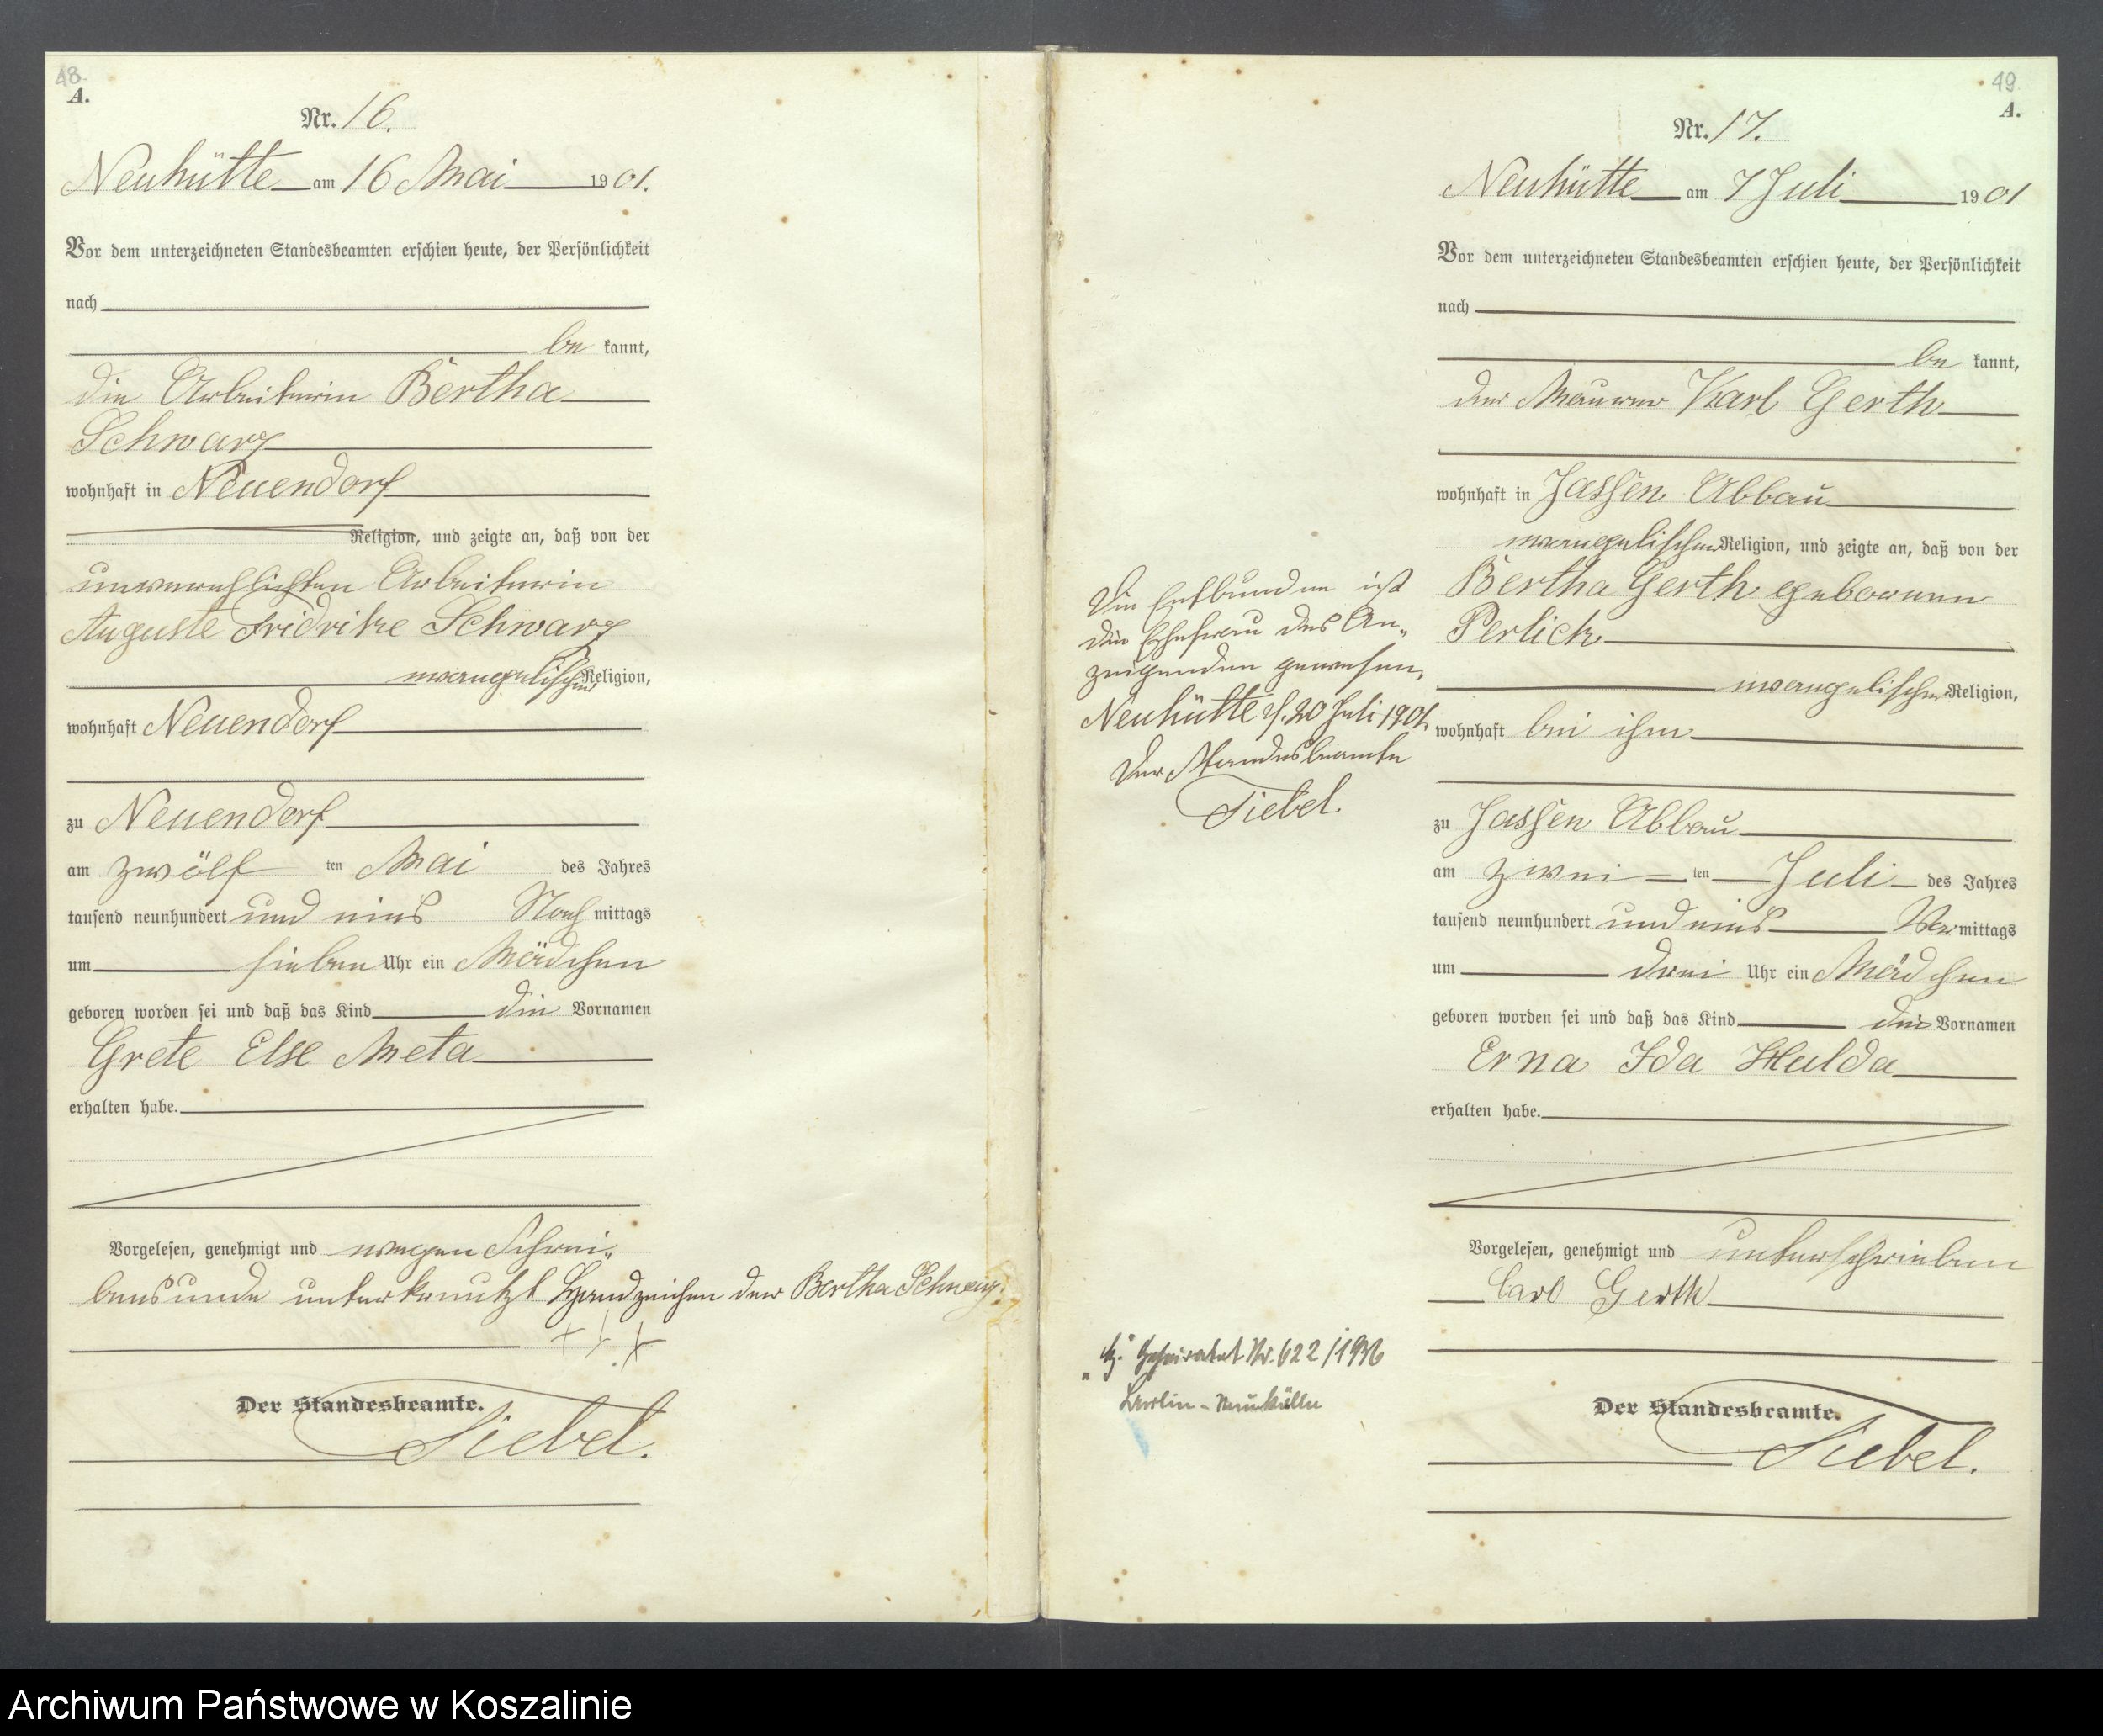 48.
A.
Nr. 16.
Neuhütte am 16 Mai 1901.
Vor dem unterzeichneten Standesbeamten erschien heute, der Persönlichkeit
nach
be kannt,
die Arbeiterin Bertha
Schwarz
wohnhaft in Neuendorf
Religion, und zeigte an, daß von der
unverehlichten Arbeiterin
Auguste Fridrike Schwarz
evangelischer Religion,
wohnhaft Neuendorf
zu Neuendorf
am zwölf ten Mai des Jahres
tausend neunhundert und eins Nach mittags
um sieben Uhr ein Mädchen
geboren worden sei und daß das Kind die Vornamen
Grete Else Meta
erhalten habe.
Vorgelesen, genehmigt und wegen Schrei-
bensunde unterkreuzt Handzeichen der Bertha Schwarz.
+++
Der Standesbeamte.
Siebel.
49.
A.
Nr. 17.
Neuhütte am 7 Juli 1901
Vor dem unterzeichneten Standesbeamten erschien heute, der Persönlichkeit
nach
be kannt,
der Maurer Karl Gerth
wohnhaft in Jassen Abbau
evangelischen Religion, und zeigte an, daß von der
Bertha Gerth geborenen
Perlick
evangelischer Religion,
wohnhaft bei ihm
zu Jassen Abbau
am zwei ten Juli des Jahres
tausend neunhundert und eins Vormittags
um drei Uhr ein Mädchen
geboren worden sei und daß das Kind die Vornamen
Erna Ida Hulda
erhalten habe.
Vorgelesen, genehmigt und unterschrieben
Carl Gerth
Der Standesbeamte.
Siebel.
Die Entbundene ist
die Ehefrau des An-
zeigenden gewesen,
Neuhütte d. 20 Juli 1901.
Der Standesbeamte
Siebel.
Geheiratet Nr. 622/1936
Berlin-Neukölln
Archiwum Państwowe w Koszalinie